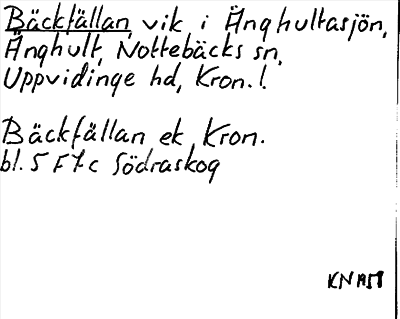 Bäckfällan, vik i Änghultasjön,
Änghult, Nottebäcks sn,
Uppvidinge hd, Kron. l.
Bäckfällan ek Kron.
bl. 5 F 7 c Södraskog